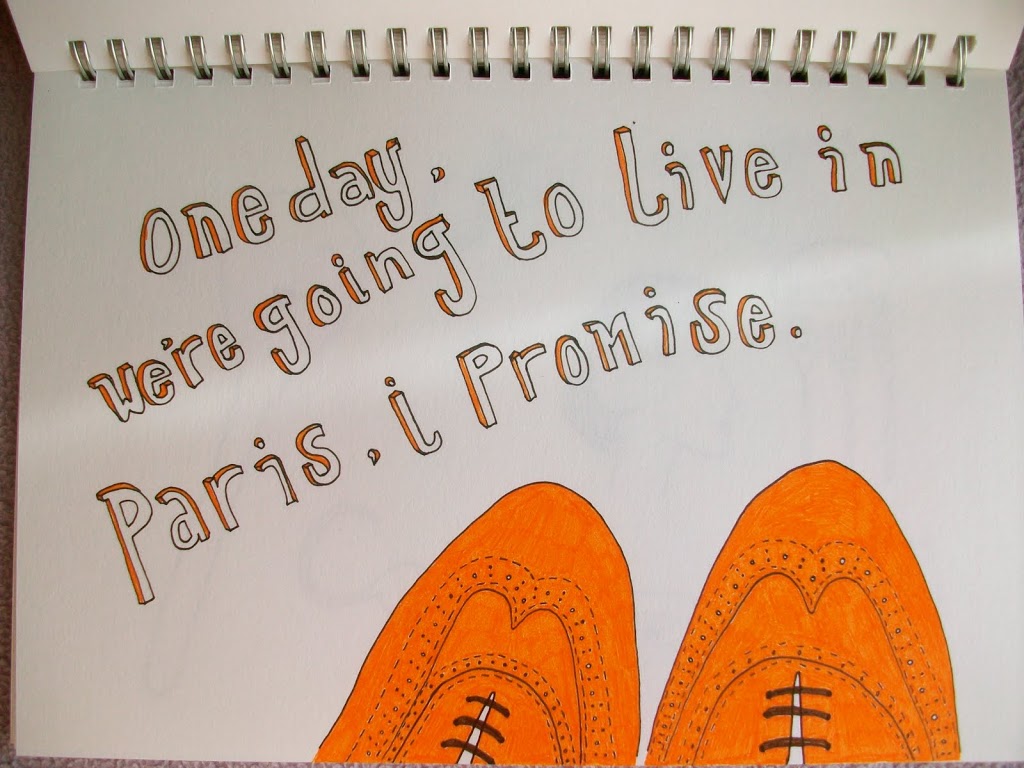 one day,
we're going to live in
Paris. i Promise.